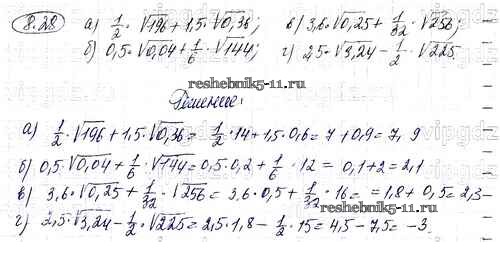 8.28 а) 1/2 · √196 + 1,5 · √0,36; в) 3,6 · √0,25 + 1/32 · √256;
б) 0,5 · √0,04 + 1/6 · √144; г) 2,5 · √3,24 − 1/2 · √225
reshebnik5-11.ru
Решение:
а) 1/2 · √196 + 1,5 · √0,36 = 1/2 · 14 + 1,5 · 0,6 = 7 + 0,9 = 7,9
б) 0,5 · √0,04 + 1/6 · √144 = 0,5 · 0,2 + 1/6 · 12 = 0,1 + 2 = 2,1
в) 3,6 · √0,25 + 1/32 · √256 = 3,6 · 0,5 + 1/32 · 16 = = 1,8 + 0,5 = 2,3
г) 2,5 · √3,24 − 1/2 · √225 = 2,5 · 1,8 − 1/2 · 15 = 4,5 − 7,5 = −3
reshebnik5-11.ru